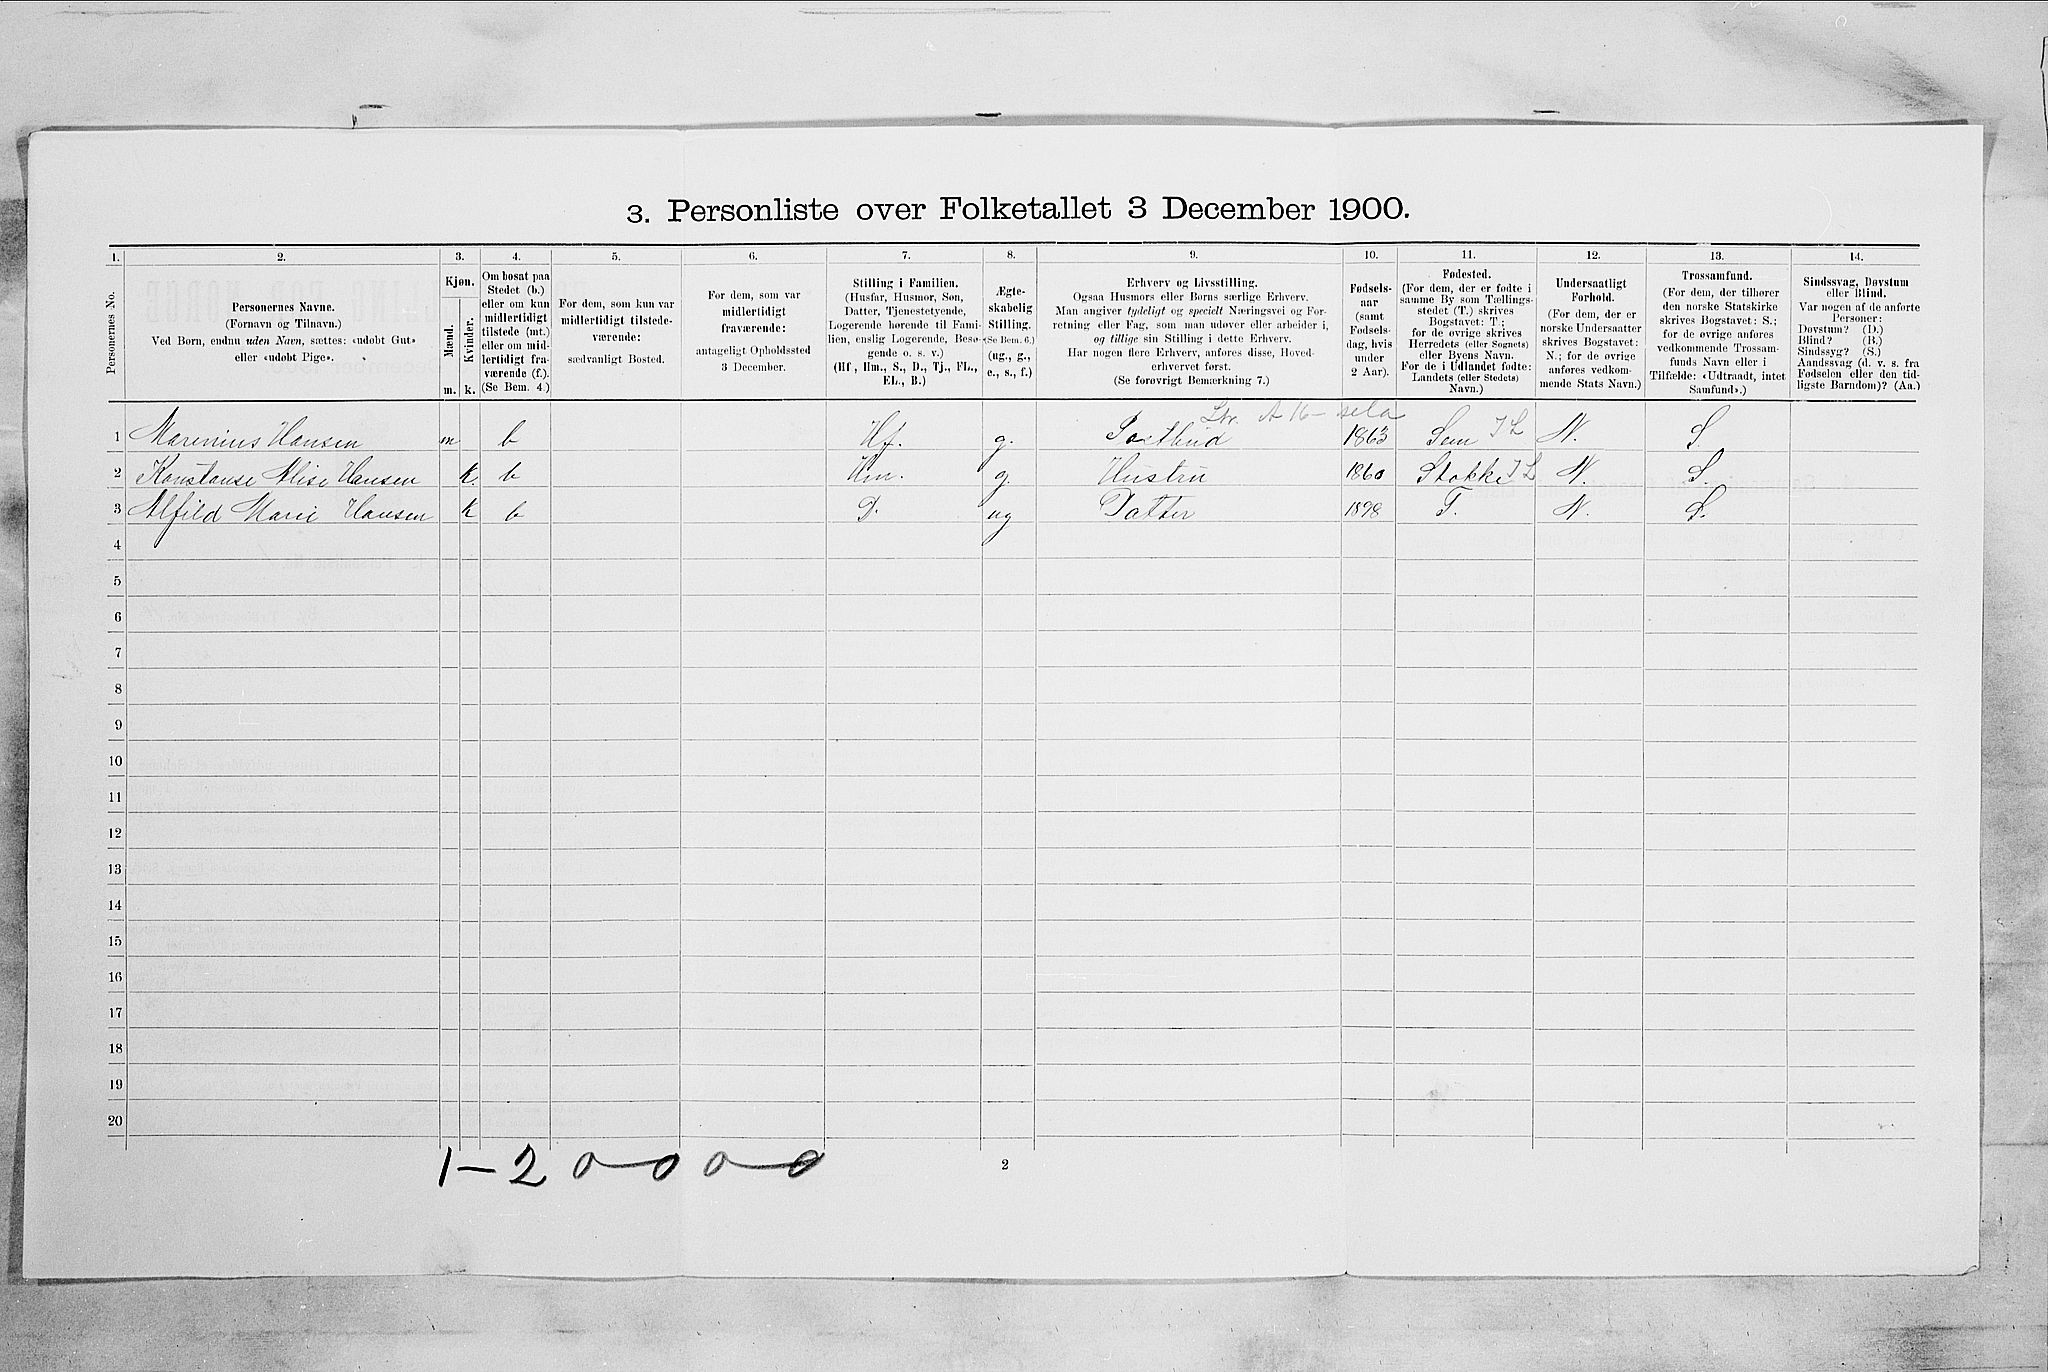 3. Personliste over Folketallet 3 December 1900.
1. 2. 3. 4. 5. 6. 7. 8. 9. 10. 11. 12. 13. 14.
Personernes No.
Personernes Navne.
(Fornavn og Tilnavn.)
Ved Børn, endnu uden Navn, sættes: «udøbt Gut»
eller «udøbt Pige».
Kjøn.
Mænd.
Kvinder.
m. k.
Om bosat paa
Stedet (b.)
eller om kun
midlertidigt
tilstede (mt.)
eller om mid-
lertidigt fra-
værende (f.).
(Se Bem. 4.)
For dem, som kun var
midlertidigt tilstede-
værende:
sædvanligt Bosted.
For dem, som var
midlertidigt
fraværende:
antageligt Opholdssted
3 December.
Stilling i Familien.
(Husfar, Husmor, Søn,
Datter, Tjenestetyende,
Logerende hørende til Fami-
lien, enslig Logerende, Besø-
gende o. s. v.)
(Hf., Hm., S., D., Tj., FL.,
EL., B.)
Ægte-
skabelig
Stilling.
(Se Bem. 6.)
(ug., g.,
e., s., f.)
Erhverv og Livsstilling.
Ogsaa Husmors eller Børns særlige Erhverv.
Man angiver tydeligt og specielt Næringsvei og For-
retning eller Fag, som man udøver eller arbeider i,
og tillige sin Stilling i dette Erhverv.
Har nogen flere Erhverv, anføres disse, Hoved-
erhvervet først.
(Se forøvrigt Bemærkning 7.)
Fødsels-
aar
(samt
Fødsels-
dag, hvis
under
2 Aar).
Fødested.
(For dem, der er fødte i
samme By som Tællings-
stedet (T.) skrives
Bogstavet: T.;
for de øvrige skrives
Herredets (eller Sognets)
eller Byens Navn.
For de i Udlandet fødte:
Landets (eller Stedets)
Navn.)
Undersaatligt
Forhold.
(For dem, der er
norske Undersaatter
skrives Bogstavet:
N.; for de øvrige
anføres vedkom-
mende Stats Navn.)
Trossamfund.
(For dem, der tilhører
den norske Statskirke
skrives Bogstavet: S.;
for de øvrige anføres
vedkommende Trossam-
funds Navn eller i
Tilfælde: «Udtraadt, intet
Samfund».)
Sindssvag, Døvstum
eller Blind.
Var nogen af de anførte
Personer:
Døvstum? (D.)
Blind? (B.)
Sindssyg? (S.)
Aandssvag (d. v. s. fra
Fødselen eller den tid-
ligste Barndom)? (Aa.)
1 Marinius Hansen m b Hf. g. Postbud 1863 Sem N. S
2 Konstanse Alise Hansen k. b Hm. g. Hustru 1860 Stokke N. S.
3 Alfild Marie Hansen k b D. ug Datter 1898 T. N. S.
4
5
6
7
8
9
10
11
12
13
14
15
16
17
18
19
20
1-2 0 0 0 0
2